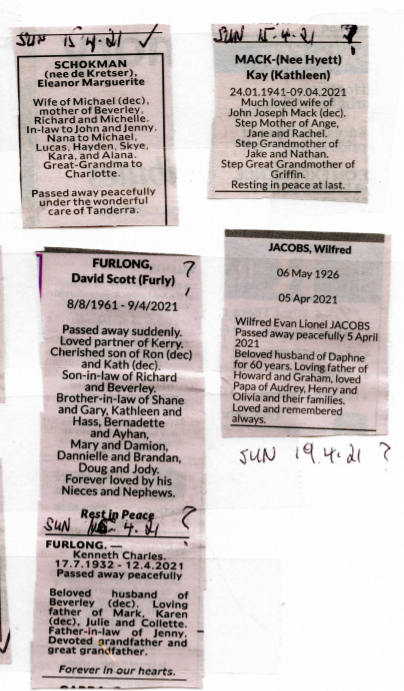 SUN 15.4.21 ✓
SCHOKMAN
(nee de Kretser),
Eleanor Marguerite
Wife of Michael (dec),
mother of Beverley,
Richard and Michelle.
In-law to John and Jenny.
Nana to Michael,
Lucas, Hayden, Skye,
Kara, and Alana.
Great-Grandma to
Charlotte.
Passed away peacefully
under the wonderful
care of Tanderra.
SUN 15.4.21 ?
MACK-(Nee Hyett)
Kay (Kathleen)
24.01.1941-09.04.2021
Much loved wife of
John Joseph Mack (dec).
Step Mother of Ange,
Jane and Rachel.
Step Grandmother of
Jake and Nathan.
Step Great Grandmother of
Griffin.
Resting in peace at last.
FURLONG, ?
David Scott (Furly)
8/8/1961 - 9/4/2021
Passed away suddenly.
Loved partner of Kerry.
Cherished son of Ron (dec)
and Kath (dec).
Son-in-law of Richard
and Beverley.
Brother-in-law of Shane
and Gary, Kathleen and
Hass, Bernadette
and Ayhan,
Mary and Damion,
Dannielle and Brandan,
Doug and Jody.
Forever loved by his
Nieces and Nephews.
Rest in Peace
SUN 4.21 ?
FURLONG. —
Kenneth Charles.
17.7.1932 - 12.4.2021
Passed away peacefully
Beloved husband of
Beverley (dec). Loving
father of Mark, Karen
(dec), Julie and Collette.
Father-in-law of Jenny.
Devoted grandfather and
great grandfather.
Forever in our hearts.
JACOBS, Wilfred
06 May 1926
05 Apr 2021
Wilfred Evan Lionel JACOBS
Passed away peacefully 5 April
2021
Beloved husband of Daphne
for 60 years. Loving father of
Howard and Graham, loved
Papa of Audrey, Henry and
Olivia and their families.
Loved and remembered
always.
SUN 19.4.21 ?